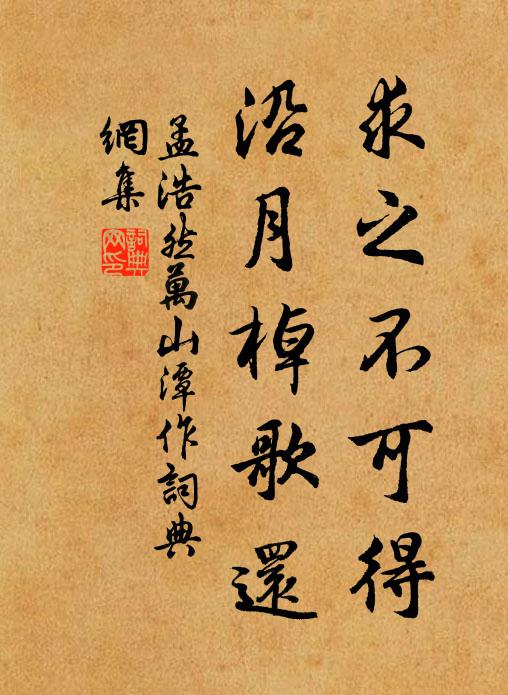 求之不可得
沿月棹歌還
孟浩然萬山潭作詞典
網集
詞典網印